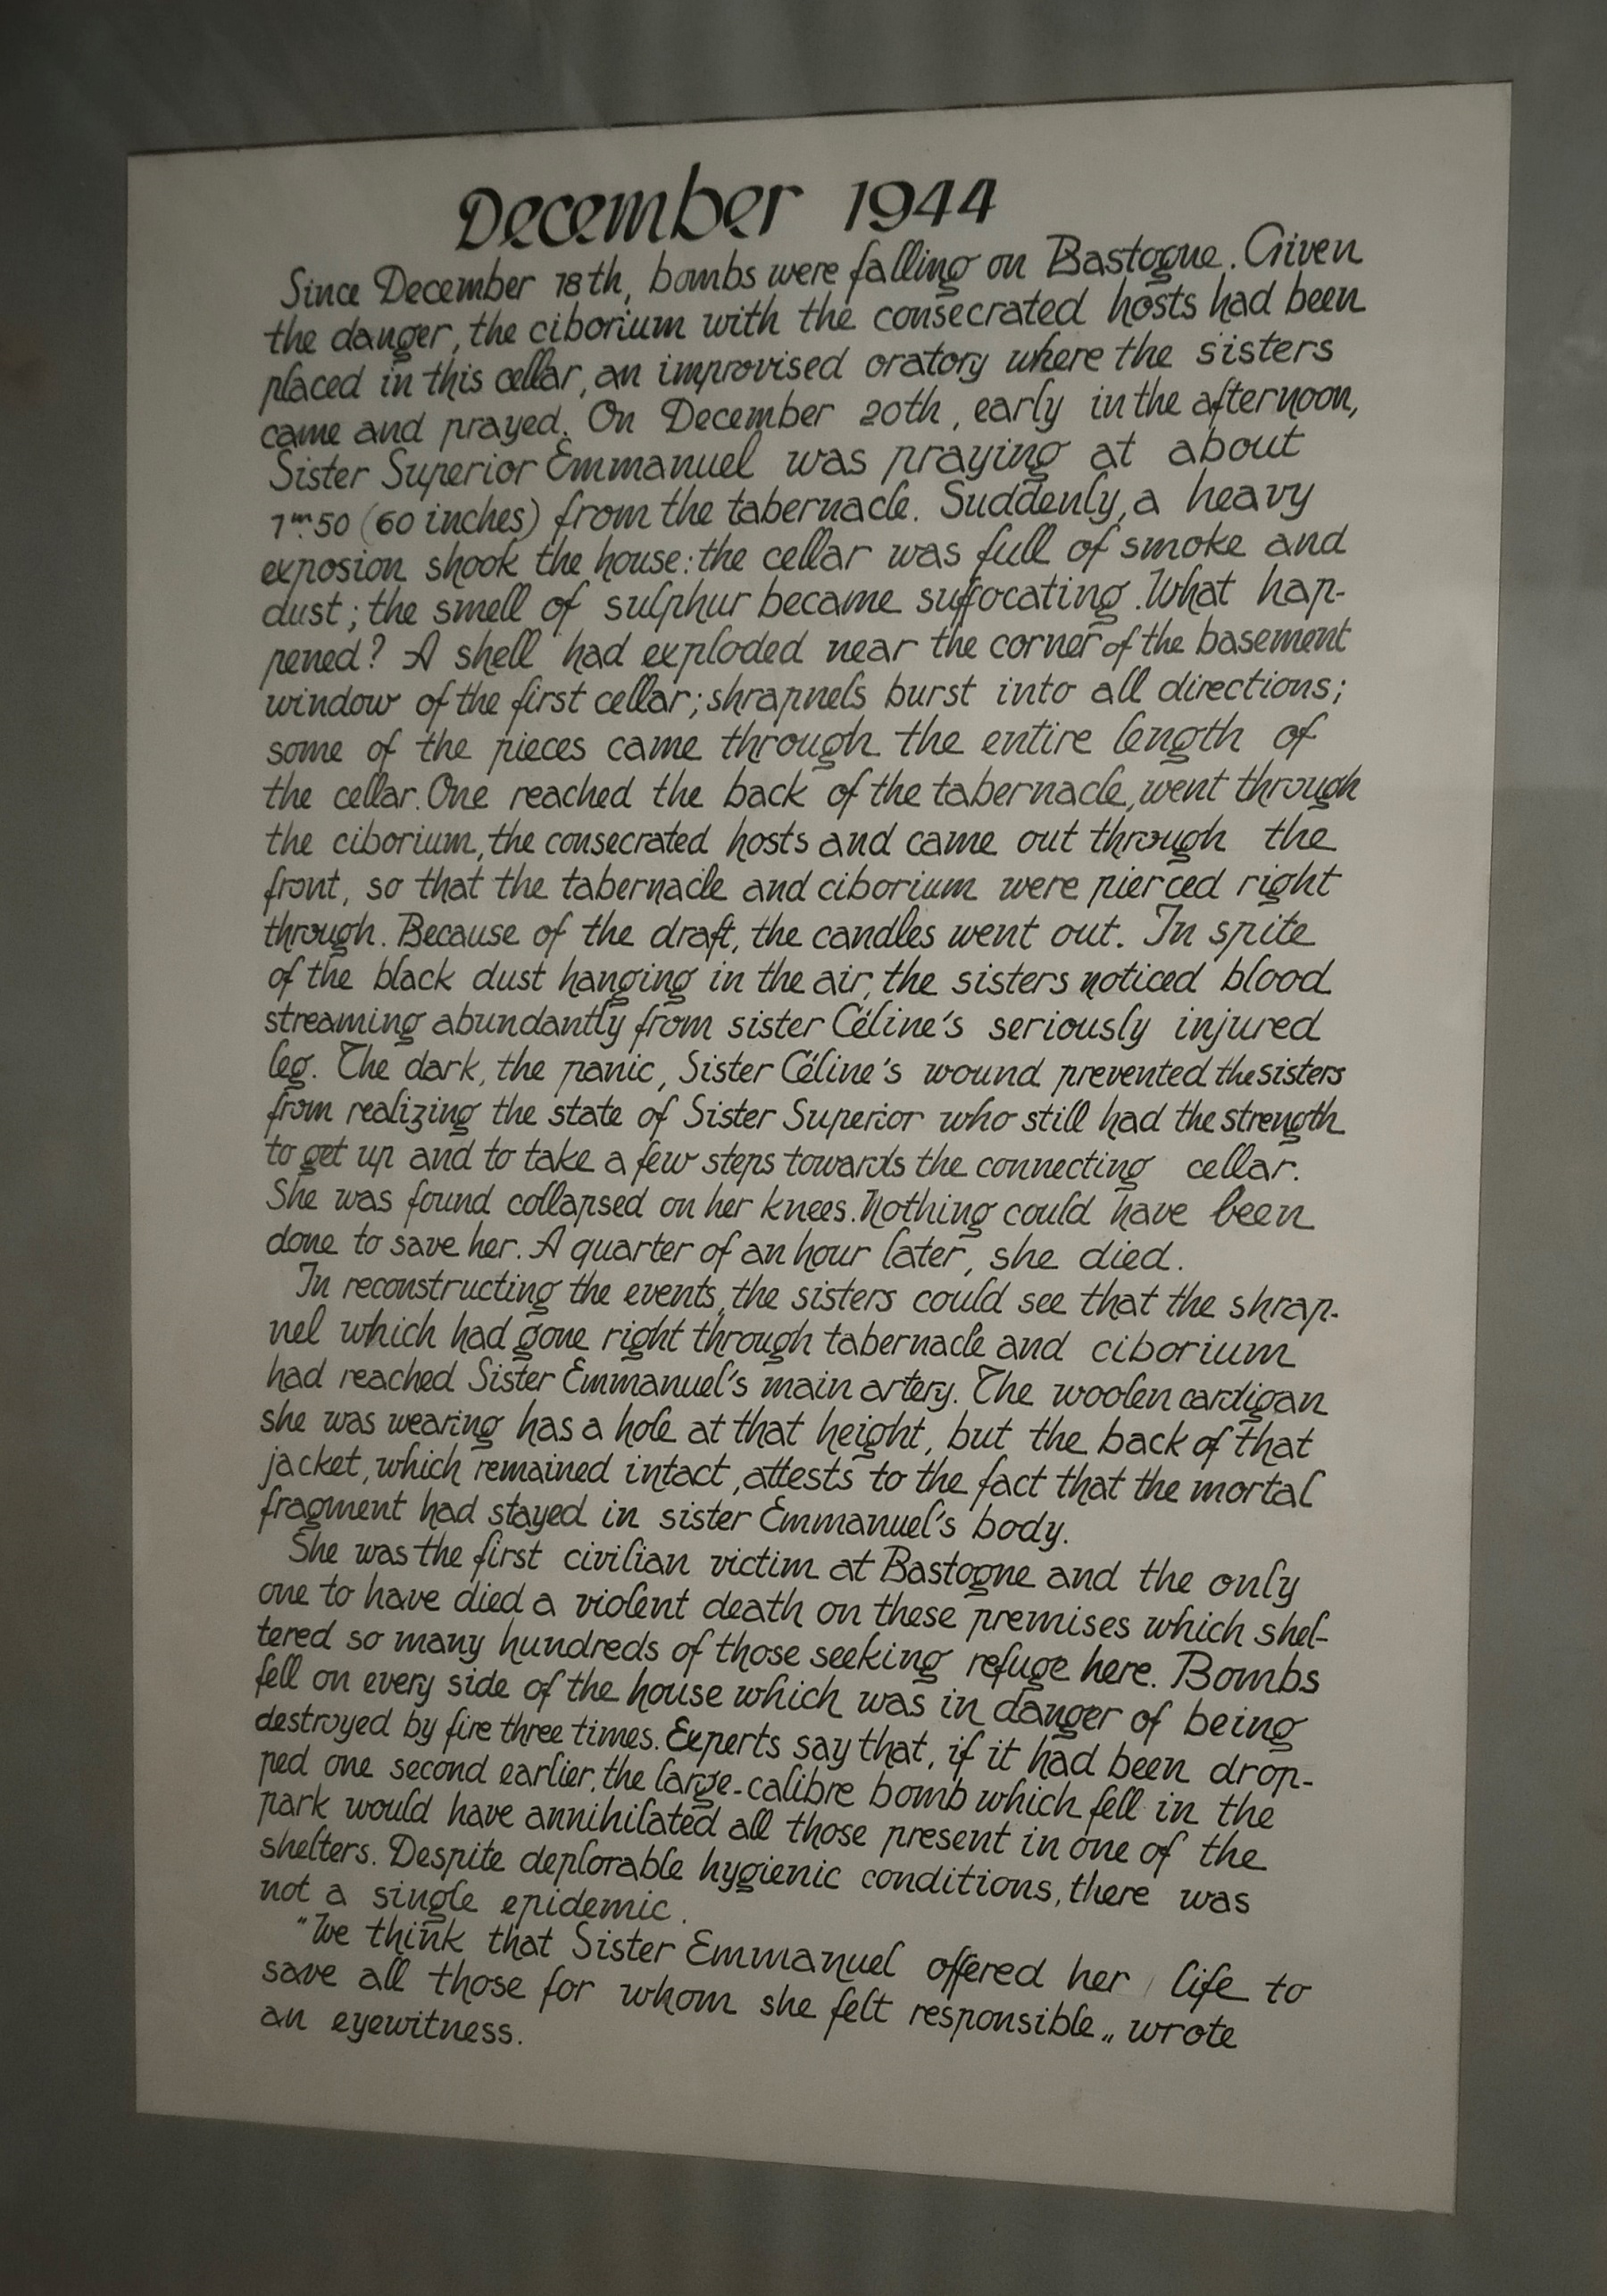 December 1944
Since December 18th, bombs were falling on Bastogne. Given
the danger, the ciborium with the consecrated hosts had been
placed in this cellar, an improvised oratory where the sisters
came and prayed. On December 20th, early in the afternoon,
Sister Superior Emmanuel was praying at about
1m.50 (60 inches) from the tabernacle. Suddenly, a heavy
exposion shook the house: the cellar was full of smoke and
dust; the smell of sulphur became suffocating. What hap-
pened? A shell had exploded near the corner of the basement
window of the first cellar; shrapnels burst into all directions;
some of the pieces came through the entire length of
the cellar. One reached the back of the tabernacle, went through
the ciborium, the consecrated hosts and came out through the
front, so that the tabernacle and ciborium were pierced right
through. Because of the draft, the candles went out. In spite
of the black dust hanging in the air, the sisters noticed blood
streaming abundantly from sister Céline's seriously injured
leg. The dark, the panic, Sister Céline's wound prevented the sisters
from realizing the state of Sister Superior who still had the strength
to get up and to take a few steps towards the connecting cellar.
She was found collapsed on her knees. Nothing could have been
done to save her. A quarter of an hour later, she died.
In reconstructing the events, the sisters could see that the shrap-
nel which had gone right through tabernacle and ciborium
had reached Sister Emmanuel's main artery. The woolen cardigan
she was wearing has a hole at that height, but the back of that
jacket, which remained intact, attests to the fact that the mortal
fragment had stayed in sister Emmanuel's body.
She was the first civilian victim at Bastogne and the only
one to have died a violent death on these premises which shel-
tered so many hundreds of those seeking refuge here. Bombs
fell on every side of the house which was in danger of being
destroyed by fire three times. Experts say that, if it had been drop-
ped one second earlier, the large-calibre bomb which fell in the
park would have annihilated all those present in one of the
shelters. Despite deplorable hygienic conditions, there was
not a single epidemic.
"We think that Sister Emmanuel offered her life to
save all those for whom she felt responsible„ wrote
an eyewitness.